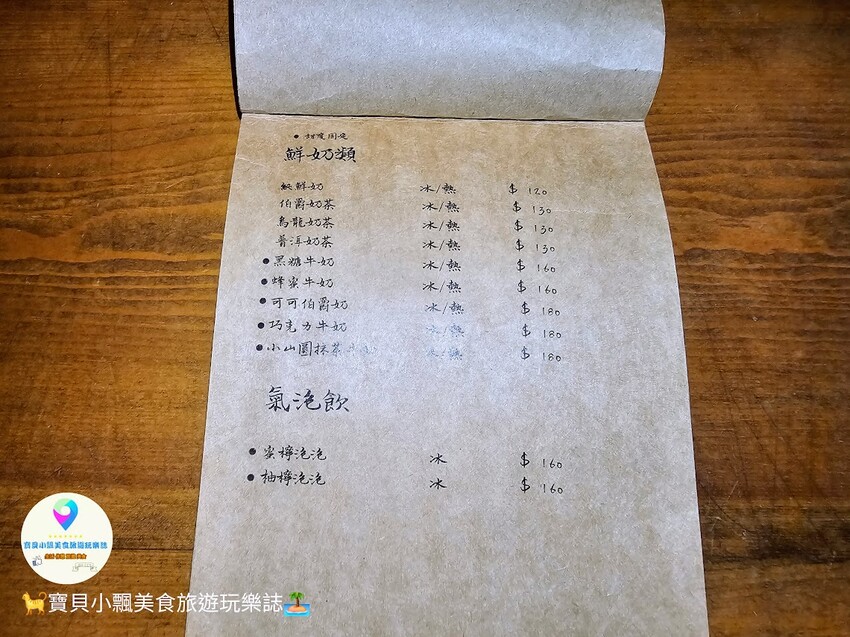 ● 甜度固定
鮮奶類
紅鮮奶 冰/熱 $ 120
伯爵奶茶 冰/熱 $ 130
烏龍奶茶 冰/熱 $ 130
普洱奶茶 冰/熱 $ 130
● 黑糖牛奶 冰/熱 $ 160
● 蜂蜜牛奶 冰/熱 $ 160
● 可可伯爵奶 冰/熱 $ 180
● 巧克力牛奶 冰/熱 $ 180
● 小山園抹茶 冰/熱 $ 180
氣泡飲
● 蜜檸泡泡 冰 $ 160
● 柚檸泡泡 冰 $ 160
寶貝小飄美食旅遊玩樂誌
寶貝小飄美食旅遊玩樂誌